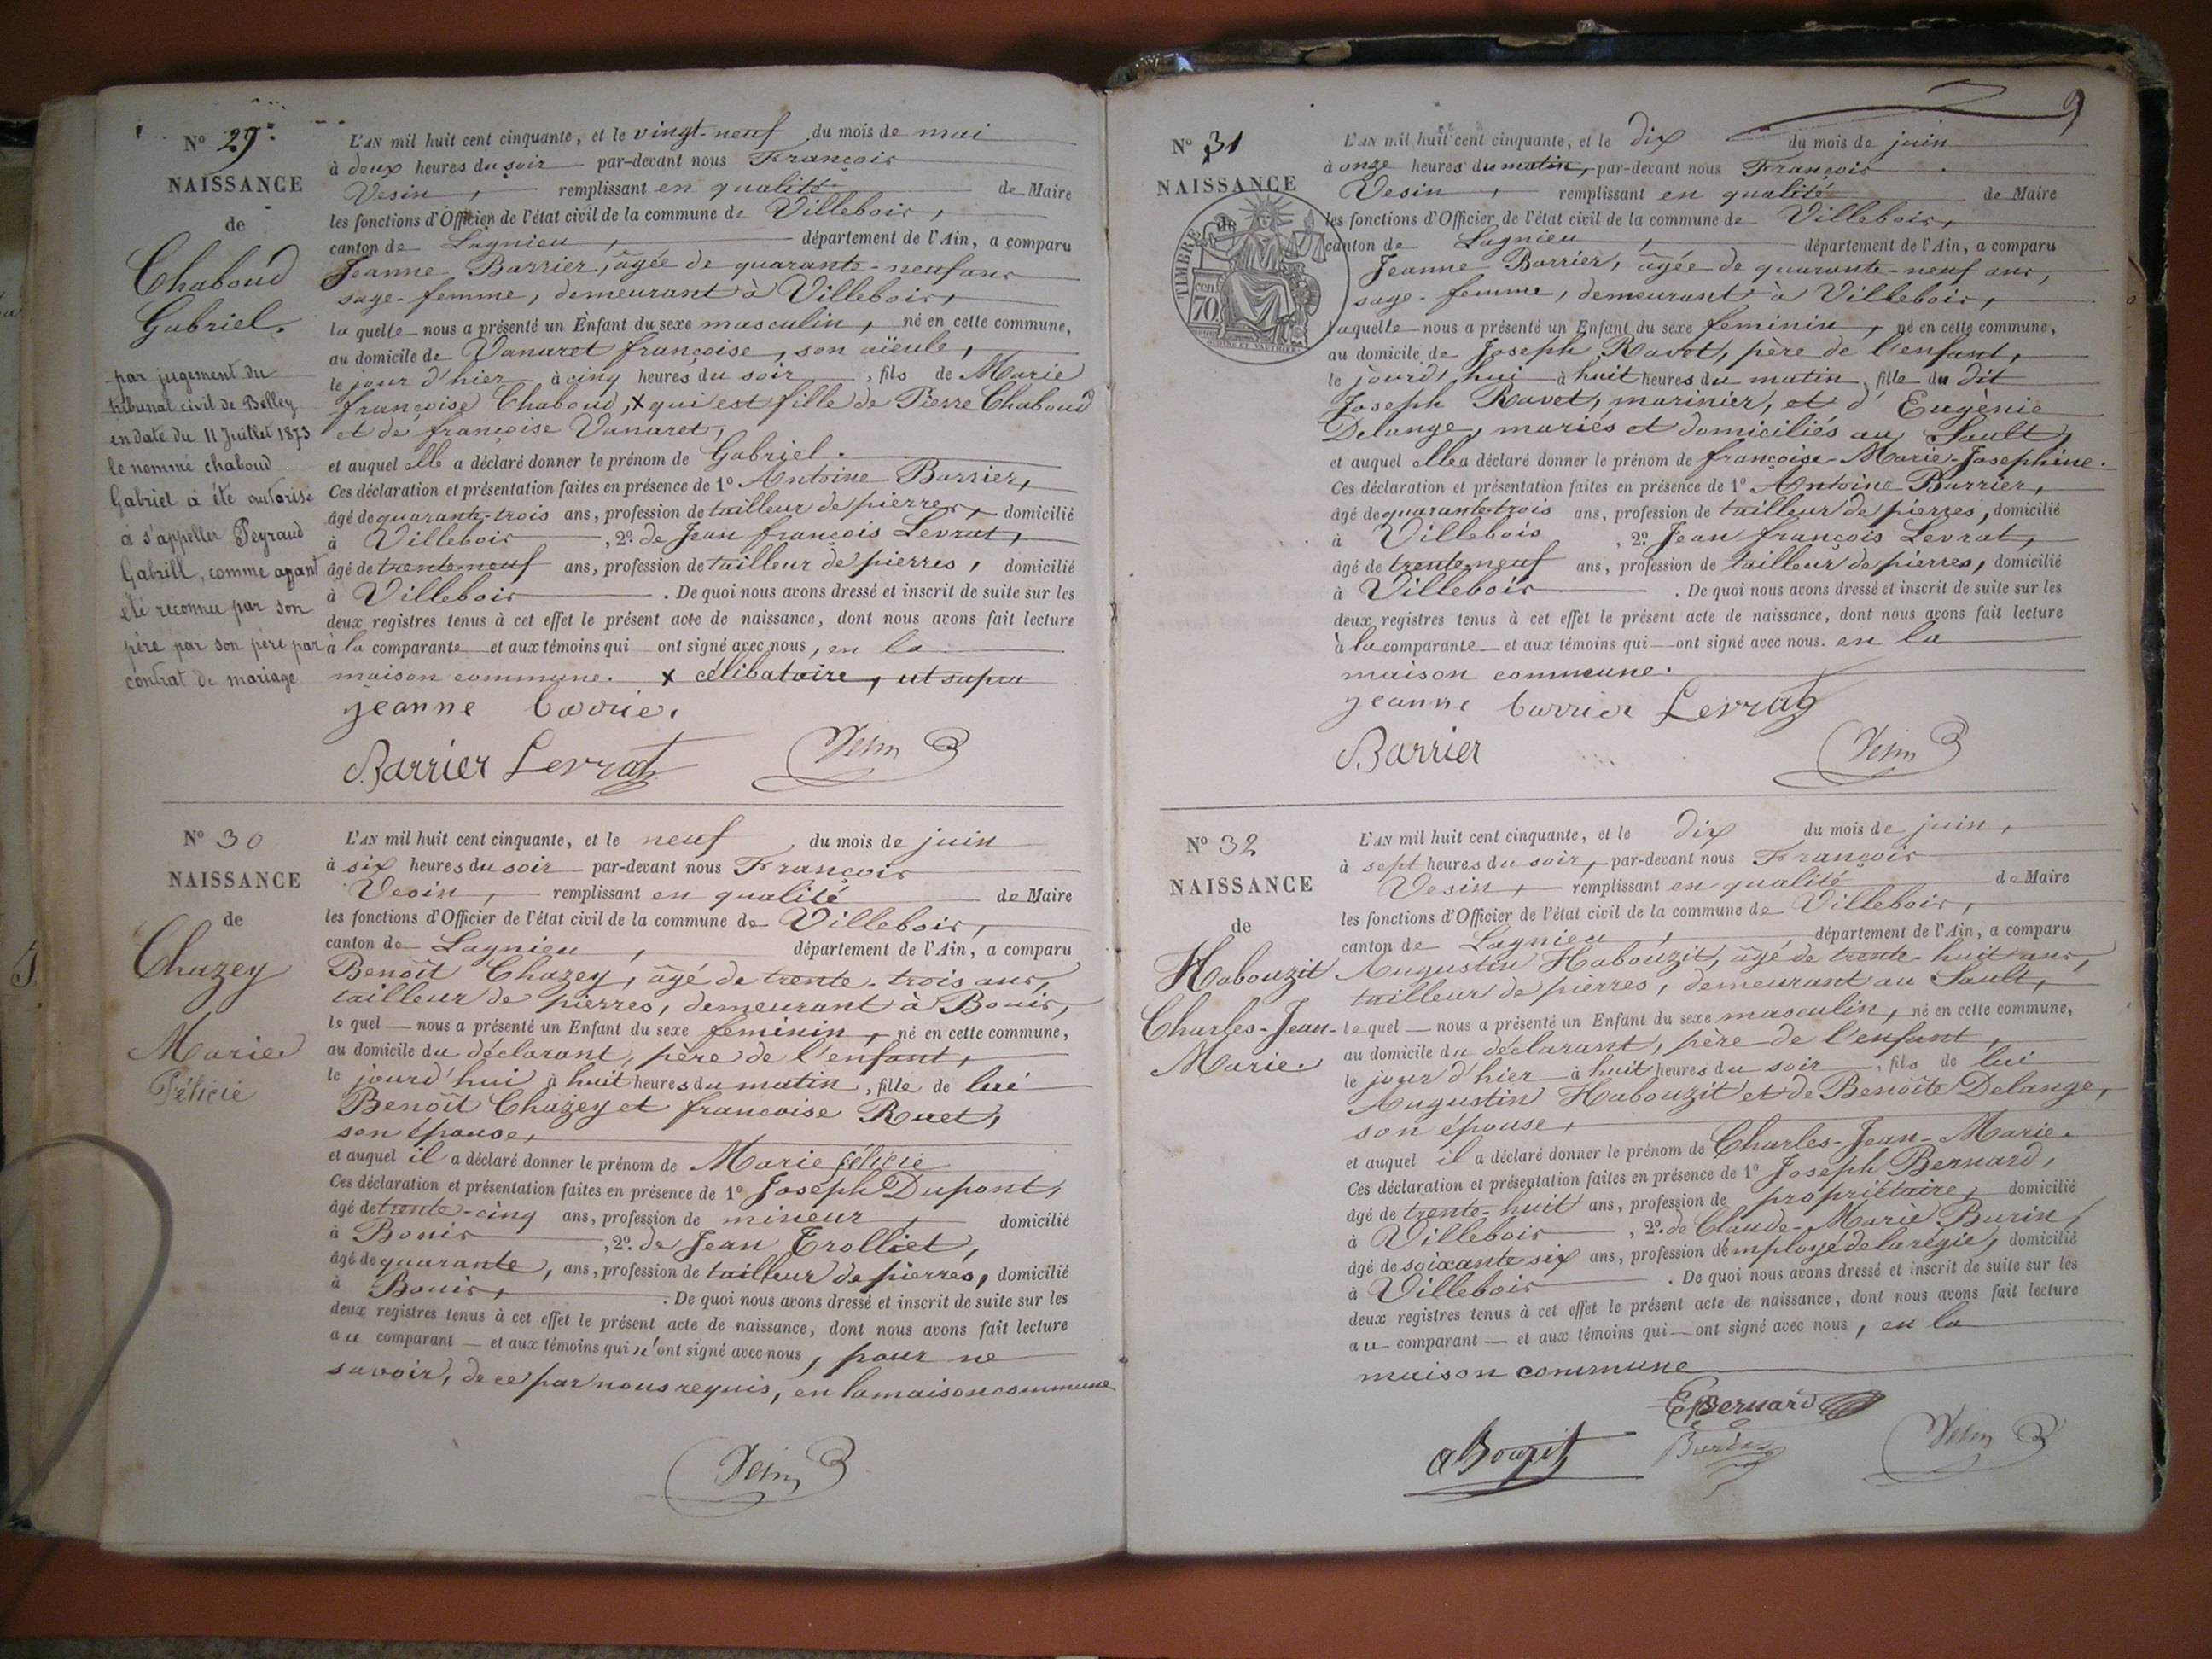 N° 29.
NAISSANCE
de
Chaboud
Gabriel.
par jugement du
tribunal civil de Belley
en date du 11 Juillet 1873
le nommé chaboud
Gabriel a été autorisé
à s'appeller Peyraud
Gabrill, comme ayant
été reconnu par son
père par son père par
contrat de mariage
L'AN mil huit cent cinquante, et le vingt-neuf du mois de mai
à deux heures du soir par-devant nous François
Vesin, remplissant en qualité de Maire
les fonctions d'Officier de l'état civil de la commune de Villebois,
canton de Lagnieu, département de l'Ain, a comparu
Jeanne Barrier, âgée de quarante-neuf ans
sage-femme, demeurant à Villebois,
laquelle nous a présenté un Enfant du sexe masculin, né en cette commune,
au domicile de Vanaret françoise, son aïeule,
le jour d'hier à cinq heures du soir, fils de Marie
françoise Chaboud, x qui est fille de Pierre Chaboud
et de françoise Vanaret,
et auquel elle a déclaré donner le prénom de Gabriel.
Ces déclaration et présentation faites en présence de 1° Antoine Barrier,
âgé de quarante-trois ans, profession de tailleur de pierres, domicilié
à Villebois, 2° de Jean françois Levrat,
âgé de trente-neuf ans, profession de tailleur de pierres, domicilié
à Villebois. De quoi nous avons dressé et inscrit de suite sur les
deux registres tenus à cet effet le présent acte de naissance, dont nous avons fait lecture
à la comparante et aux témoins qui ont signé avec nous, en la
maison commune. x célibataire, ut supra
jeanne barrier
Barrier Levrat Vesin
N° 30
NAISSANCE
de
Chazey
Marie
Félicie
L'AN mil huit cent cinquante, et le neuf du mois de juin
à six heures du soir par-devant nous François
Vesin, remplissant en qualité de Maire
les fonctions d'Officier de l'état civil de la commune de Villebois,
canton de Lagnieu, département de l'Ain, a comparu
Benoît Chazey, âgé de trente-trois ans,
tailleur de pierres, demeurant à Bouis,
lequel nous a présenté un Enfant du sexe féminin, né en cette commune,
au domicile du déclarant, père de l'enfant,
le jourd'hui à huit heures du matin, fille de lui
Benoît Chazey et francoise Ruet,
son épouse,
et auquel il a déclaré donner le prénom de Marie félicie
Ces déclaration et présentation faites en présence de 1° Joseph Dupont,
âgé de trente-cinq ans, profession de mineur, domicilié
à Bouis, 2° de Jean Trolliet,
âgé de quarante, ans, profession de tailleur de pierres, domicilié
à Bouis,. De quoi nous avons dressé et inscrit de suite sur les
deux registres tenus à cet effet le présent acte de naissance, dont nous avons fait lecture
au comparant et aux témoins qui n'ont signé avec nous, pour ne
savoir, de ce par nous requis, en la maison commune
Vesin
9
N° 31
NAISSANCE
de
TIMBRE
70 cen
L'AN mil huit cent cinquante, et le dix du mois de juin
à onze heures du matin, par-devant nous François
Vesin, remplissant en qualité de Maire
les fonctions d'Officier de l'état civil de la commune de Villebois,
canton de Lagnieu, département de l'Ain, a comparu
Jeanne Barrier, âgée de quarante-neuf ans,
sage-femme, demeurant à Villebois,
laquelle nous a présenté un Enfant du sexe féminin, né en cette commune,
au domicile de Joseph Ravet, père de l'enfant,
le jourd'hui à huit heures du matin, fille du dit
Joseph Ravet, marinier, et d'Eugènie
Delange, mariés et domiciliés au Sault,
et auquel elle a déclaré donner le prénom de françoise-Marie-Josephine.
Ces déclaration et présentation faites en présence de 1° Antoine Barrier,
âgé de quarante-trois ans, profession de tailleur de pierres, domicilié
à Villebois, 2° Jean françois Levrat,
âgé de trente-neuf ans, profession de tailleur de pierres, domicilié
à Villebois. De quoi nous avons dressé et inscrit de suite sur les
deux registres tenus à cet effet le présent acte de naissance, dont nous avons fait lecture
à la comparante et aux témoins qui ont signé avec nous. en la
maison commune.
jeanne barrier Levrat
Barrier Vesin
N° 32
NAISSANCE
de
Habouzit
Charles-Jean-
Marie.
L'AN mil huit cent cinquante, et le dix du mois de juin,
à sept heures du soir, par-devant nous François
Vesin, remplissant en qualité de Maire
les fonctions d'Officier de l'état civil de la commune de Villebois,
canton de Lagnieu, département de l'Ain, a comparu
Augustin Habouzit, âgé de trente-huit ans,
tailleur de pierres, demeurant au Sault,
lequel nous a présenté un Enfant du sexe masculin, né en cette commune,
au domicile du déclarant, père de l'enfant,
le jour d'hier à huit heures du soir, fils de lui
Augustin Habouzit et de Benoîte Delange,
son épouse,
et auquel il a déclaré donner le prénom de Charles-Jean-Marie.
Ces déclaration et présentation faites en présence de 1° Joseph Bernard,
âgé de trente-huit ans, profession de propriétaire, domicilié
à Villebois, 2° de Claude-Marie Burin,
âgé de soixante-six ans, profession d'employé de la régie, domicilié
à Villebois. De quoi nous avons dressé et inscrit de suite sur les
deux registres tenus à cet effet le présent acte de naissance, dont nous avons fait lecture
au comparant et aux témoins qui ont signé avec nous, en la
maison commune
Bernard
abouzit Burin Vesin